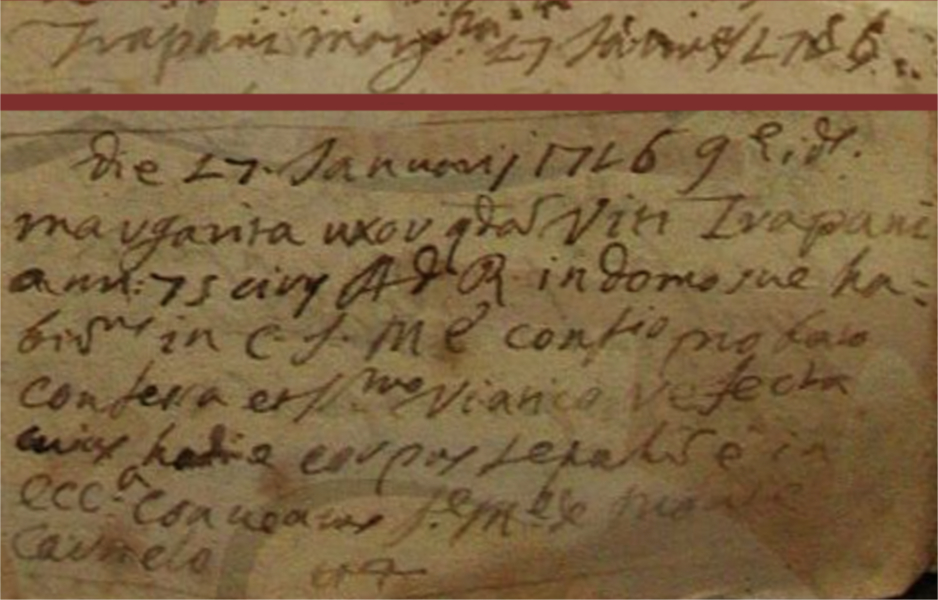 Trapani marg.ta 27 Januarij 1726
Die 27. Januarij 1726 9 e. id.
margarita uxor qdã Viti Trapani
ann: 75 civis A d R in domo sue ha-
bitnis in C. S. M e confio probato
confessa et ssmo Viatico refecta
cuius hodie corpus sepult é in
ecca Conventus S.e M.e de monte
Carmelo